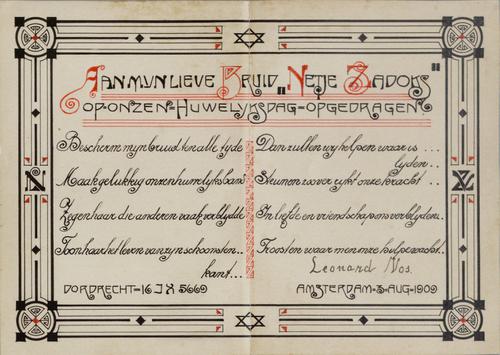 Aan mijn lieve Bruid „Netje Zadoks"
op onzen = Huwelyksdag = opgedragen.
Bescherm myn bruid ten alle tyde
Maak gelukkig onzen huwlyksband
Zegen haar die anderen vaak verblydde
Toon haar het leven van zyn schoonsten..
kant...
Dan zullen wy helpen waar is ...
lyden..
Steunen zoover rykt onze kracht ..
In liefde en vriendschap ons verblyden..
Troosten waar men onze hulp wacht..
Leonard Vos.
Dordrecht-16 5669
Amsterdam-3-Aug-1909
N
Z